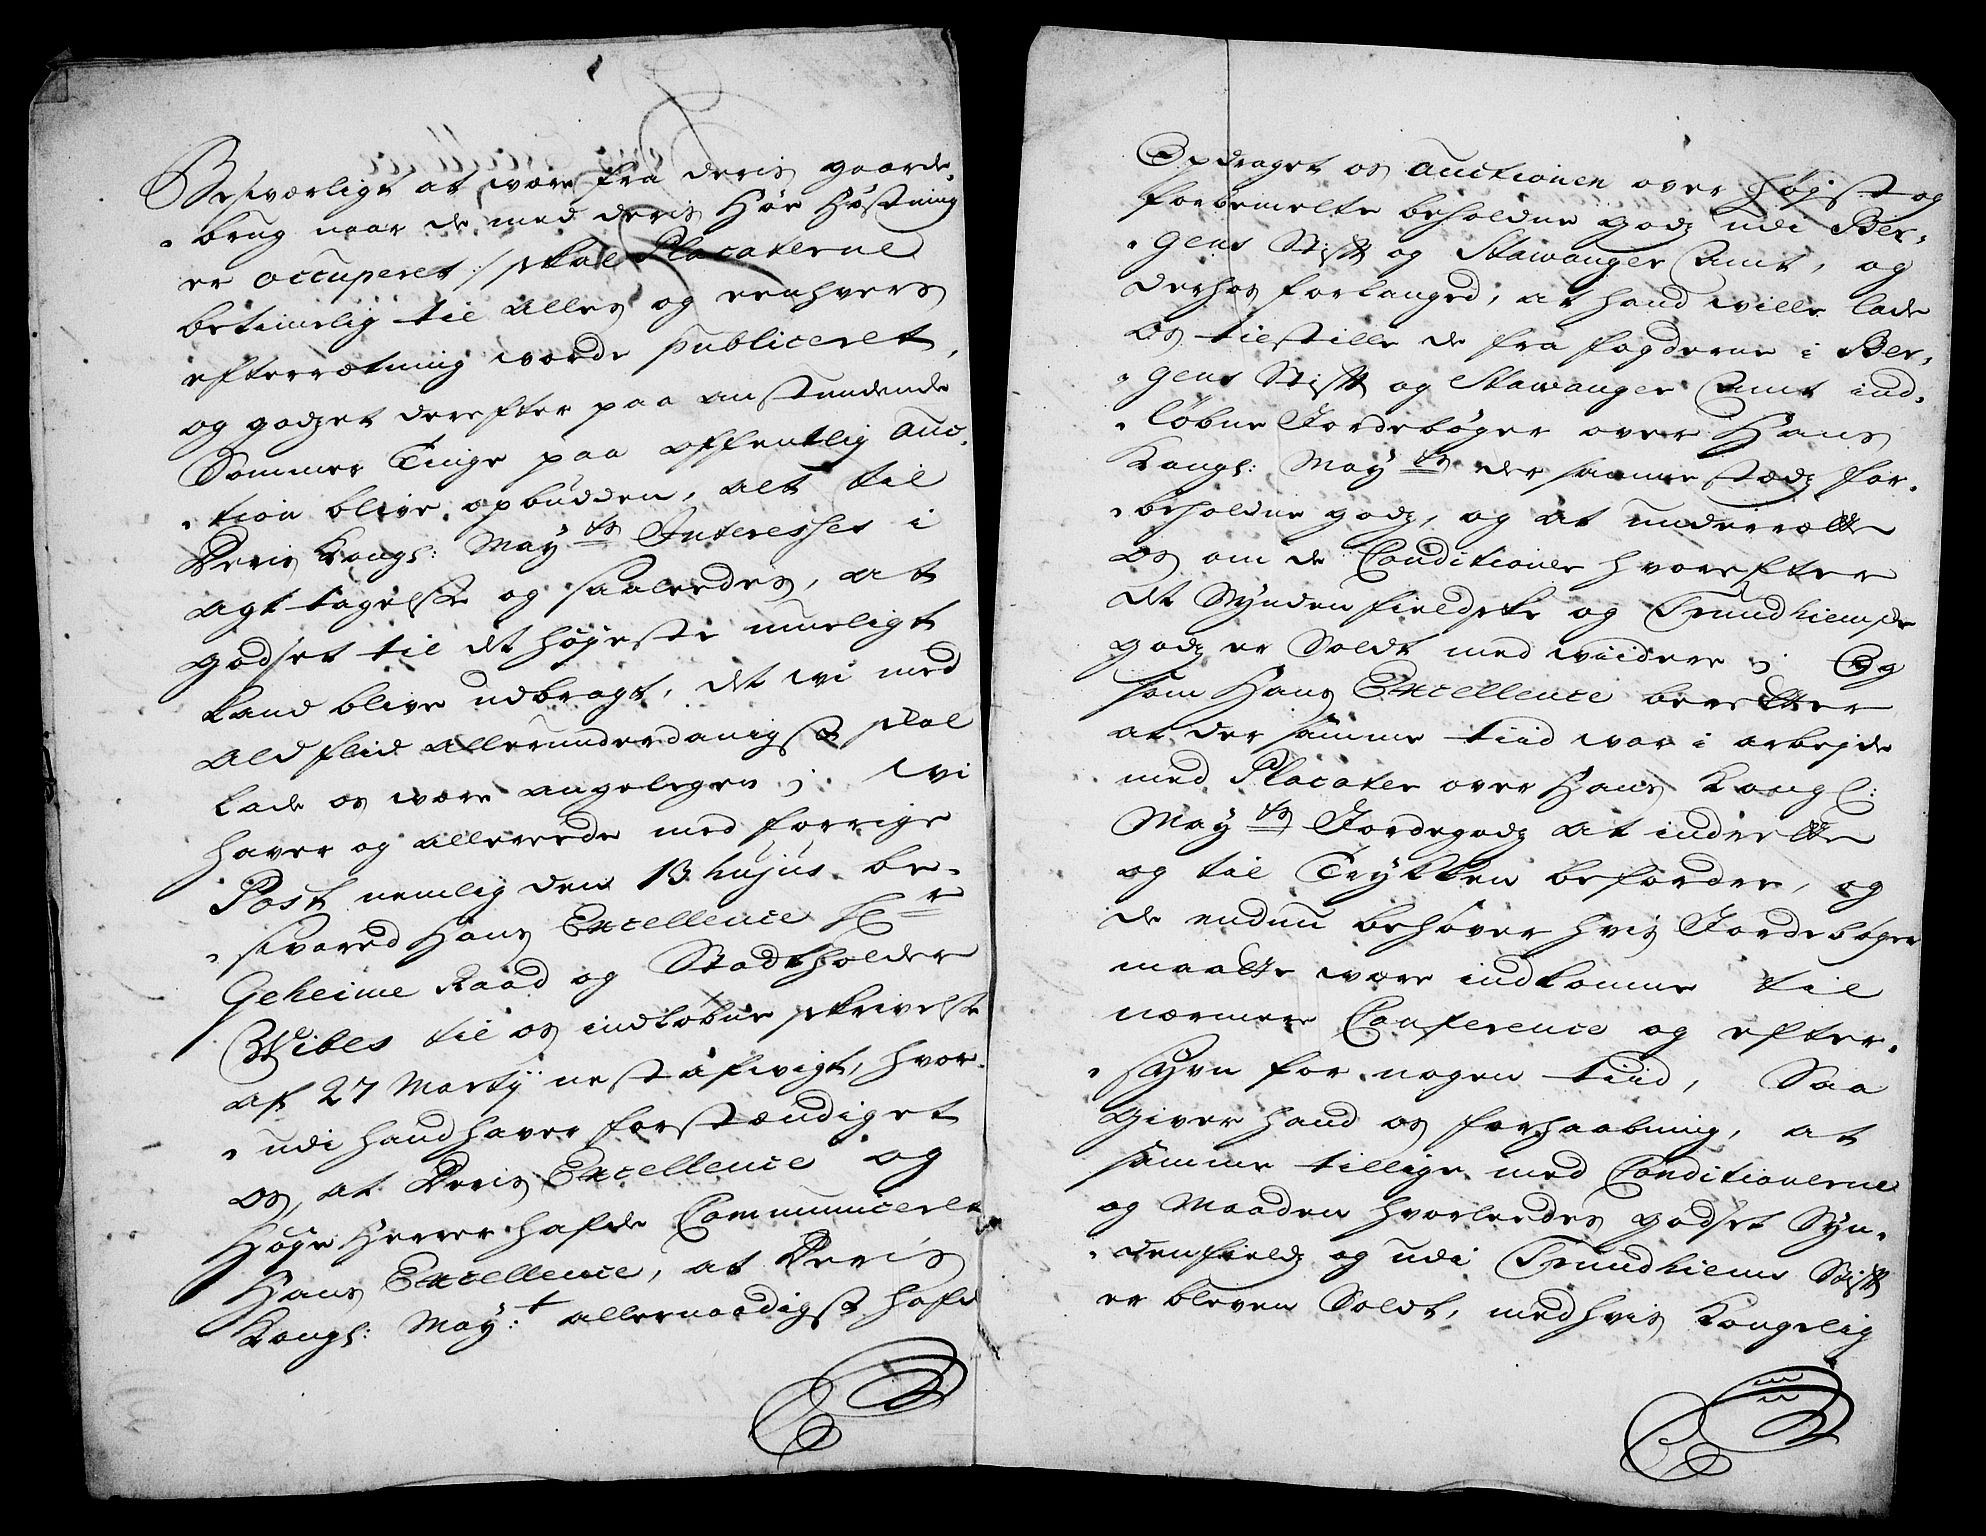 Besværligt at være fra deris gaarde-
brug naar de med deris Høe Høstning
er occuperet :/ skal Placaterne
betimelig til alles og eenhvers
efterrætning worde publiceret,
og godzet derefter paa anstundende
Sommer Tinge paa offentlig Auc-
tion blive opbudden, alt til
Deris Kongl: Mayts Interesses i
agt tagelse og saaledes, at
godset til det højeste mueligt
kand blive udbragt, det wi med
ald fliid allerunderdanigst skal
lade os være angelegen; Wi
haver og allerrede med forrige
Post nemlig den 13 hujus be-
svared Hans Excellence Hr
Geheime Raad og Stadtholder
Wibes til os indløbne skrivelse
af 27 Marty nest afvigt, hvor-
udi hand haver forstændiget
os, at Deris Excellence og
Høye Herrer hafde Communicerit
Hans Excellence, at Deris
Kongl: May:t allernaadigst hafde
Opdraget os auctionen over høyst og
forbemelte beholdne godz udi Ber-
gens Stift og Stawanger Amt, og
derhos forlanged, at hand wille lade
os tilstille de fra fogderne i Ber-
gens Stift og Stawanger Amt ind-
løbne Jordebøger over Hans
Kongl: Mayts der sammestædz for-
beholdne godz, og at underrætte
os om de Conditioner hvorefter
det Syndenfieldske og Trundhiemske
godz er Soldt med wiidere; Og
som Hans Excellence beretter
at der samme tiid war i arbejde
med Placater over Hans Kongl:
Mayts Jordegodz at indrette
og til Trykken befordre, og
de endnu behøver hvis Jordebøger
maatte være indkomne til
nærmere Conference og efter-
syen for nogen tiid, Saa
giver hand os forhaabning, at
samme tillige med Conditionerne
og Maaden hvorleedes godset Syn-
denfieldz og udi Trundhiems Stift
er bleven Soldt, med hvis Kongelig